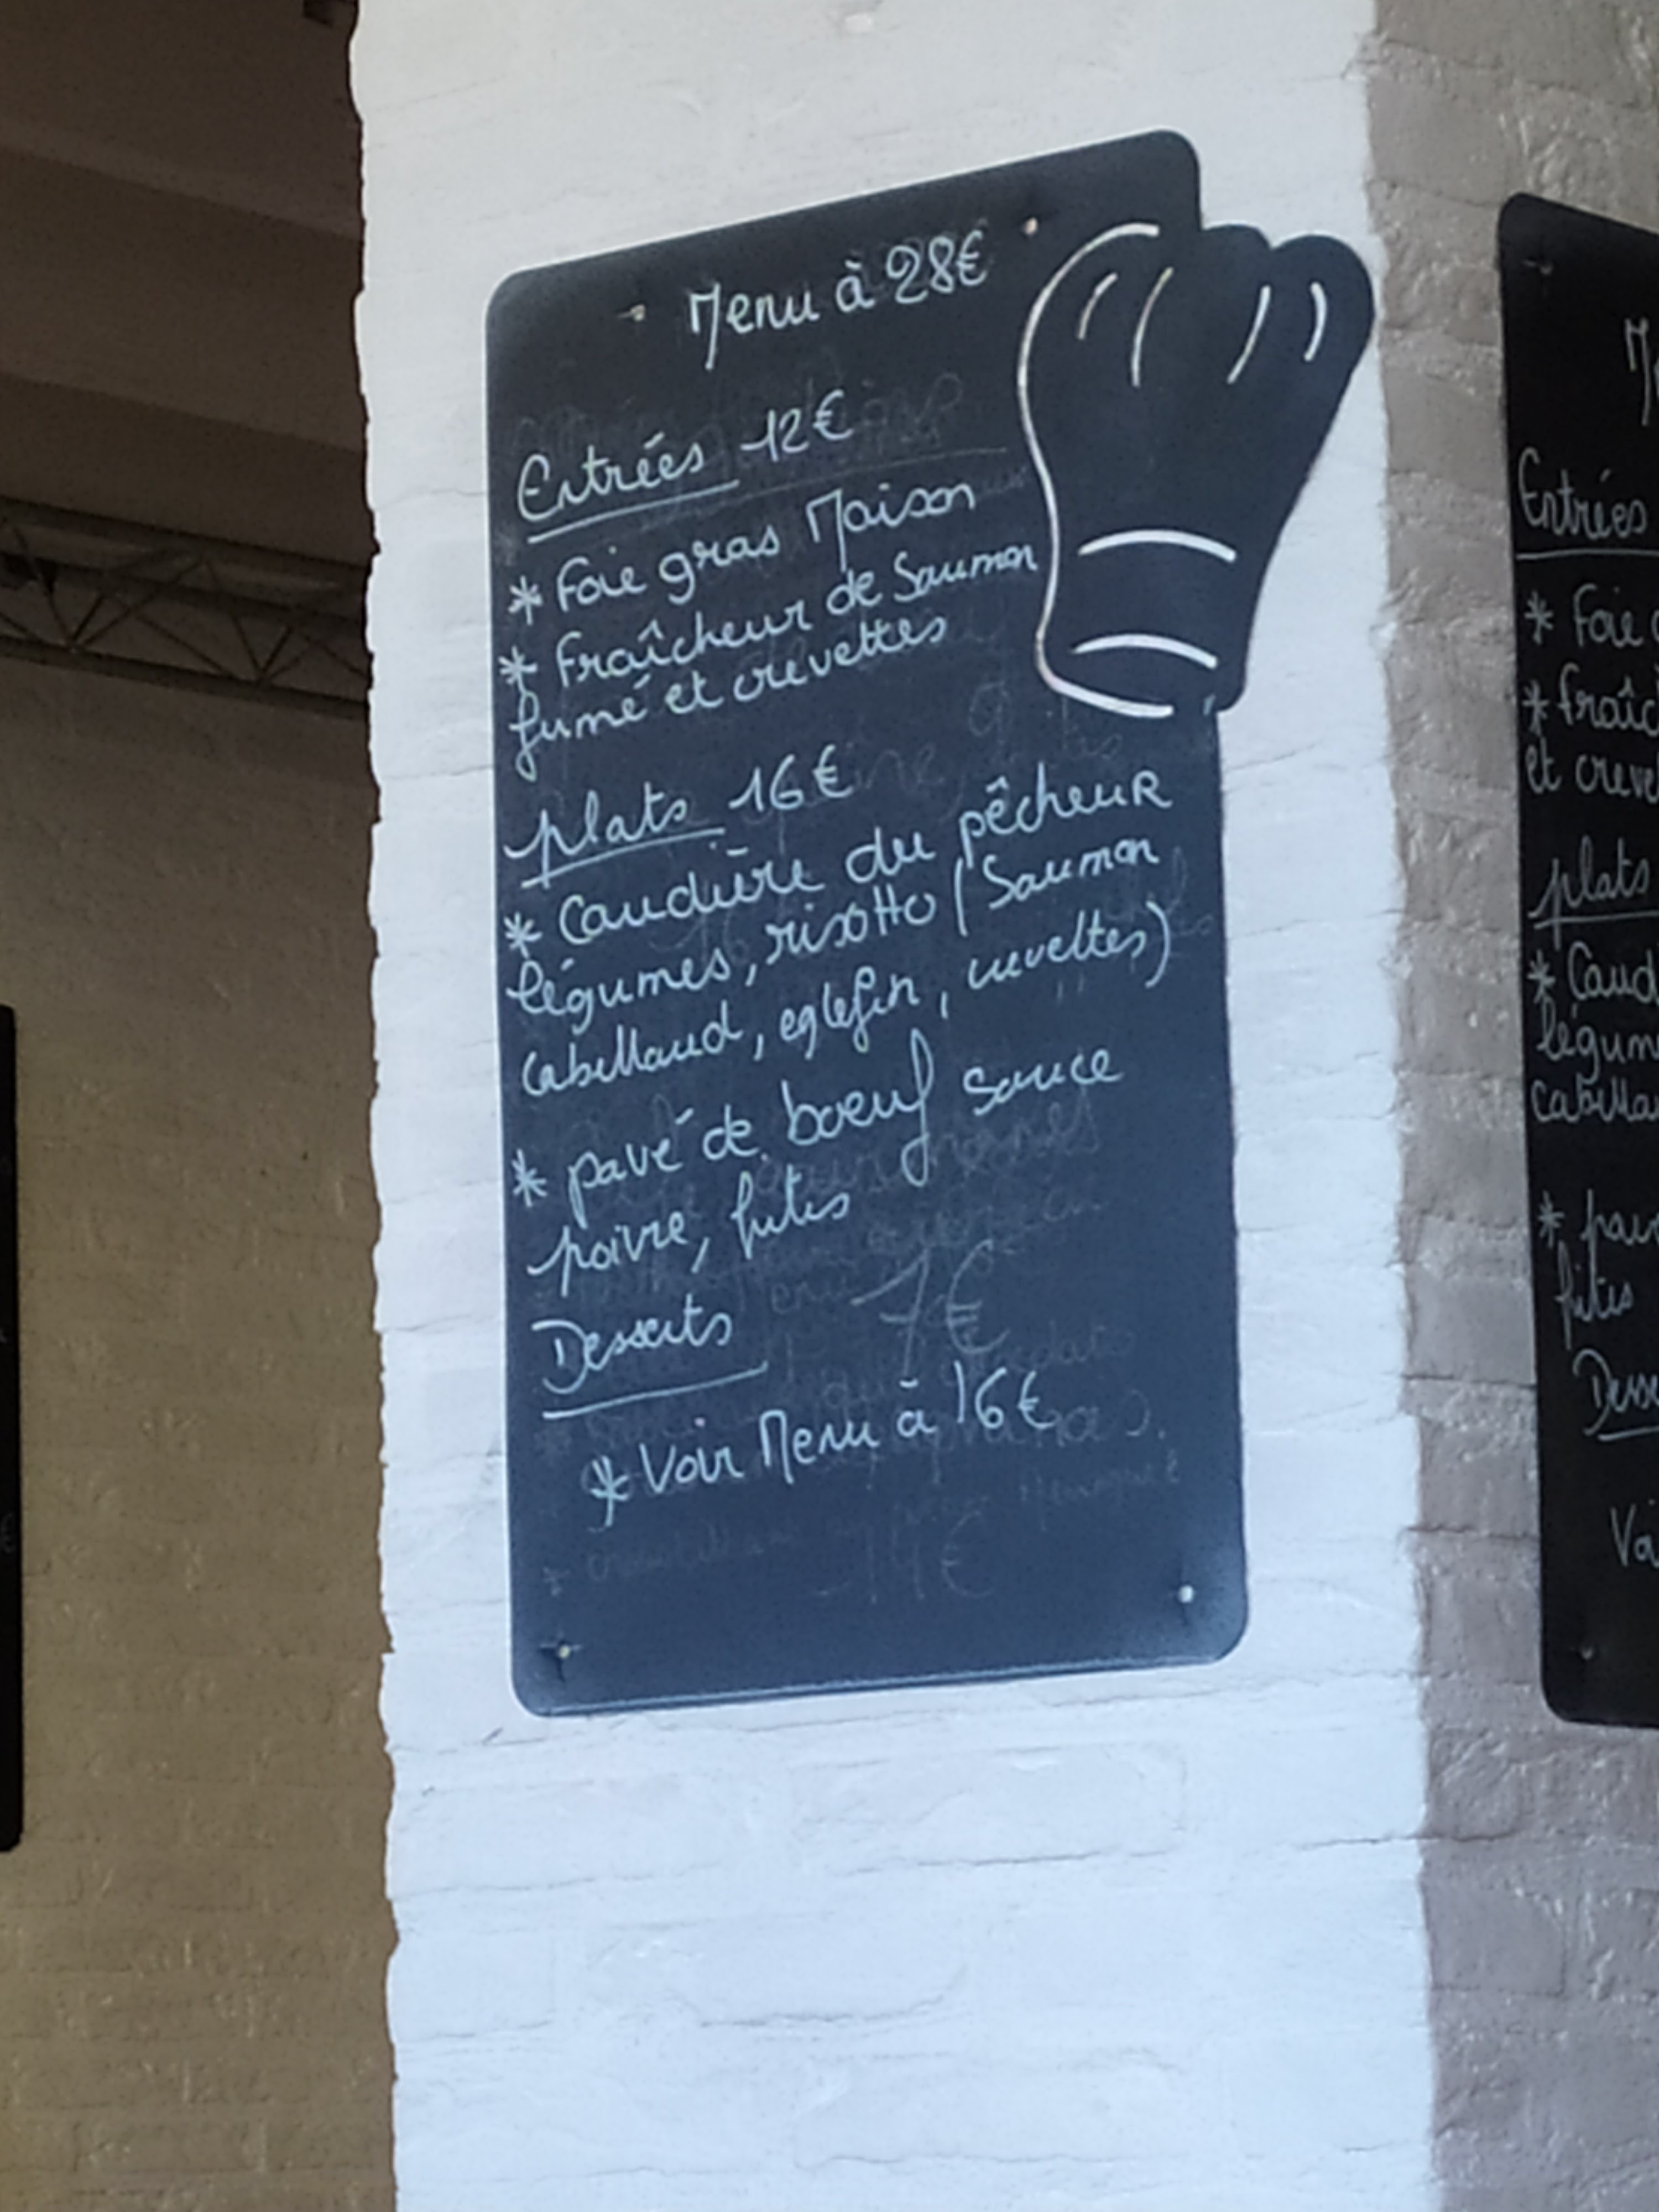 Menu à 28€
Entrées 12€
* Foie gras Maison
* Fraîcheur de Saumon
fumé et crevettes
plats 16€
* Caudière du pêcheur
légumes, risotto (Saumon
cabillaud, eglefin, crevettes)
* pavé de boeuf sauce
poivre, frites
Desserts
7€
* Voir Menu à 16€
14€
Entrées
* Foie
* fraîc
et creve
plats
* Caud
légum
cabilla
* pav
frites
Desse
Voi